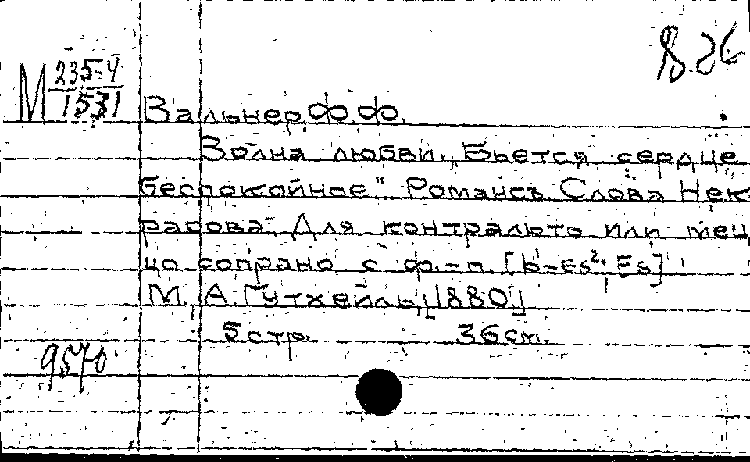 М 235-4
1531
В.26
Вальнер, Ф.Ф.
Волна любви. „Бьется сердце
беспокойное" Романсъ Слова Нек-
расова. Для контральто или мец-
цо сопрано с ф.-п. [b-es²; Es]
М., А. Гутхейль, [1880]
5 стр. 36 см.
9570